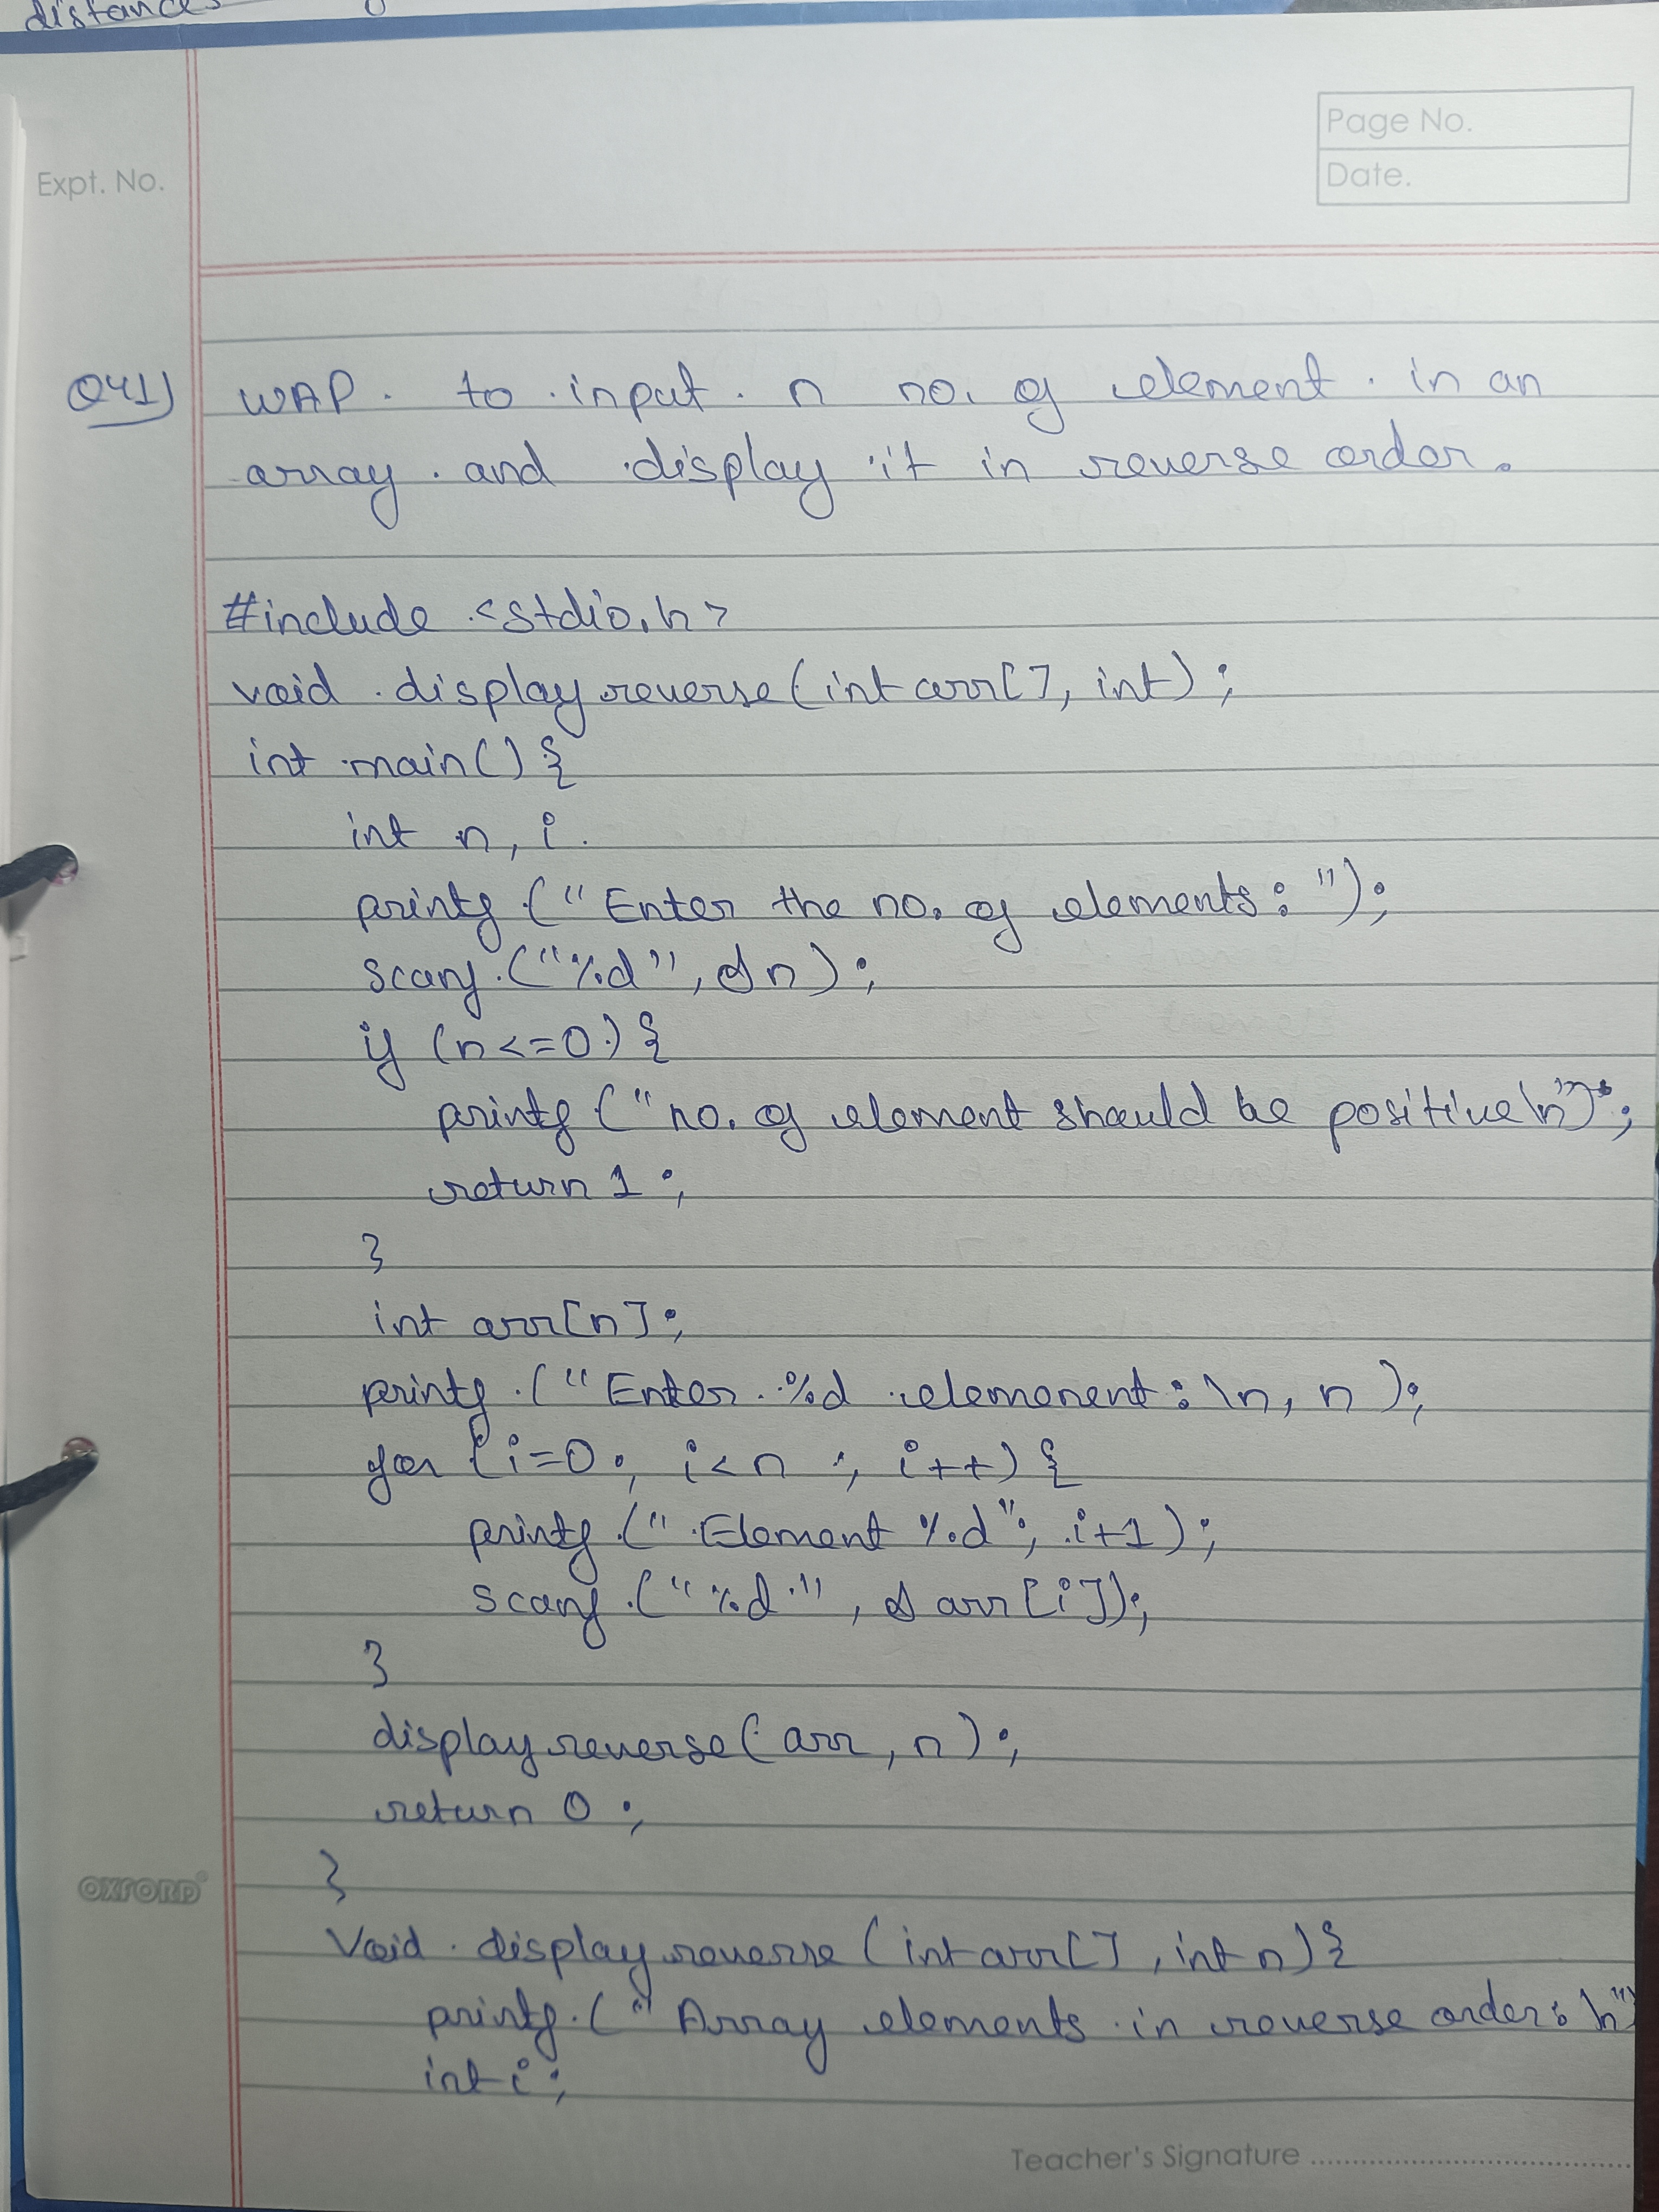 distances
Page No.
Date.
Expt. No.
Q41) WAP. to input n no. of element in an
array and display it in reverse order.
#include <stdio.h>
void display reverse (int arr[], int);
int main() {
int n, i.
printf ("Enter the no. of elements: ");
scanf ("%d", &n);
if (n<=0) {
printf ("no. of element should be positive\n");
return 1;
}
int arr[n];
printf ("Enter %d elemenent: \n, n);
for (i=0; i<n ; i++) {
printf (" Element %d"; i+1);
scanf ("%d ", & arr[i]);
}
display reverse (arr, n);
return 0;
}
Void display reverse (int arr[], int n) {
printf (" Array elements in reverse order: \n"
int i;
OXFORD
Teacher's Signature